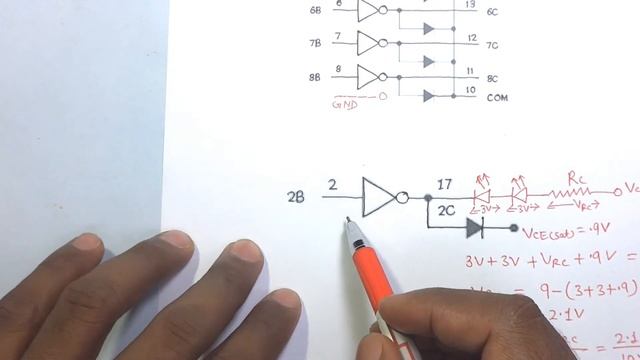 6B 6 13 6C
7B 7 12 7C
8B 8 11 8C
GND 10 COM
Rc
2B 2 17 ←3V→ ←3V→ ←VRC→
2C
VCE(sat) = .9V
3V + 3V + VRC + .9V =
= 9 - (3+3+.9)
2.1V
= 2.1